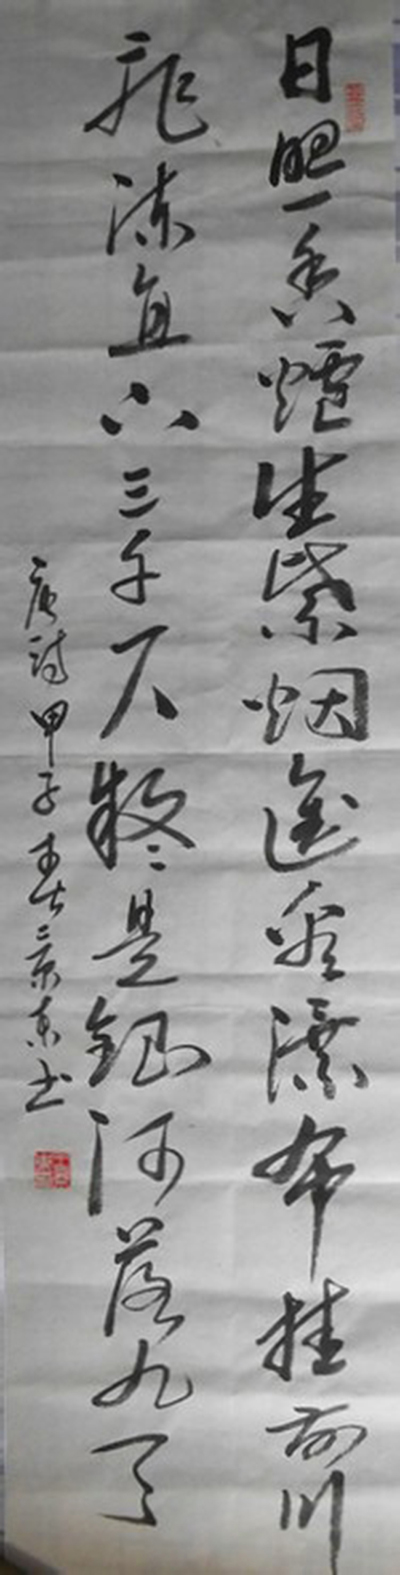 日照香爐生紫烟遥看瀑布挂前川
飛流直下三千尺疑是銀河落九天
唐诗甲子春王景东书